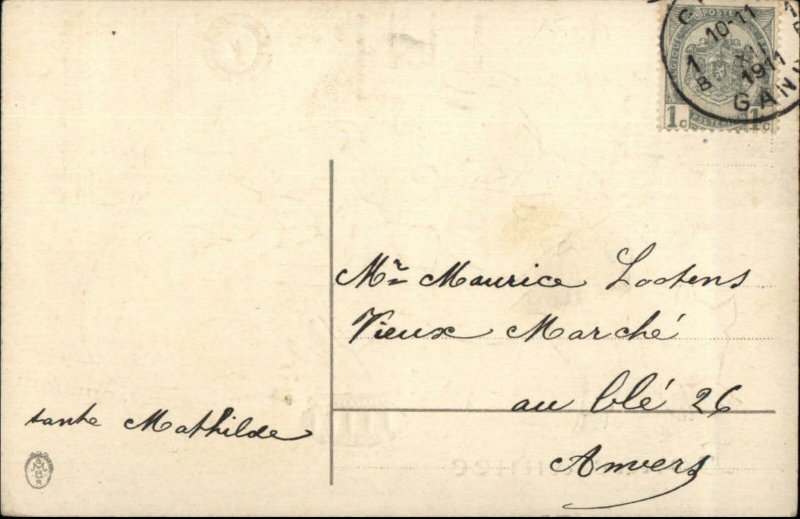 10-11
1
1911
GAN
POSTE
1c
1c
Mr Maurice Lootens
Vieux Marché
au blé 26
Anvers
tante Mathilde